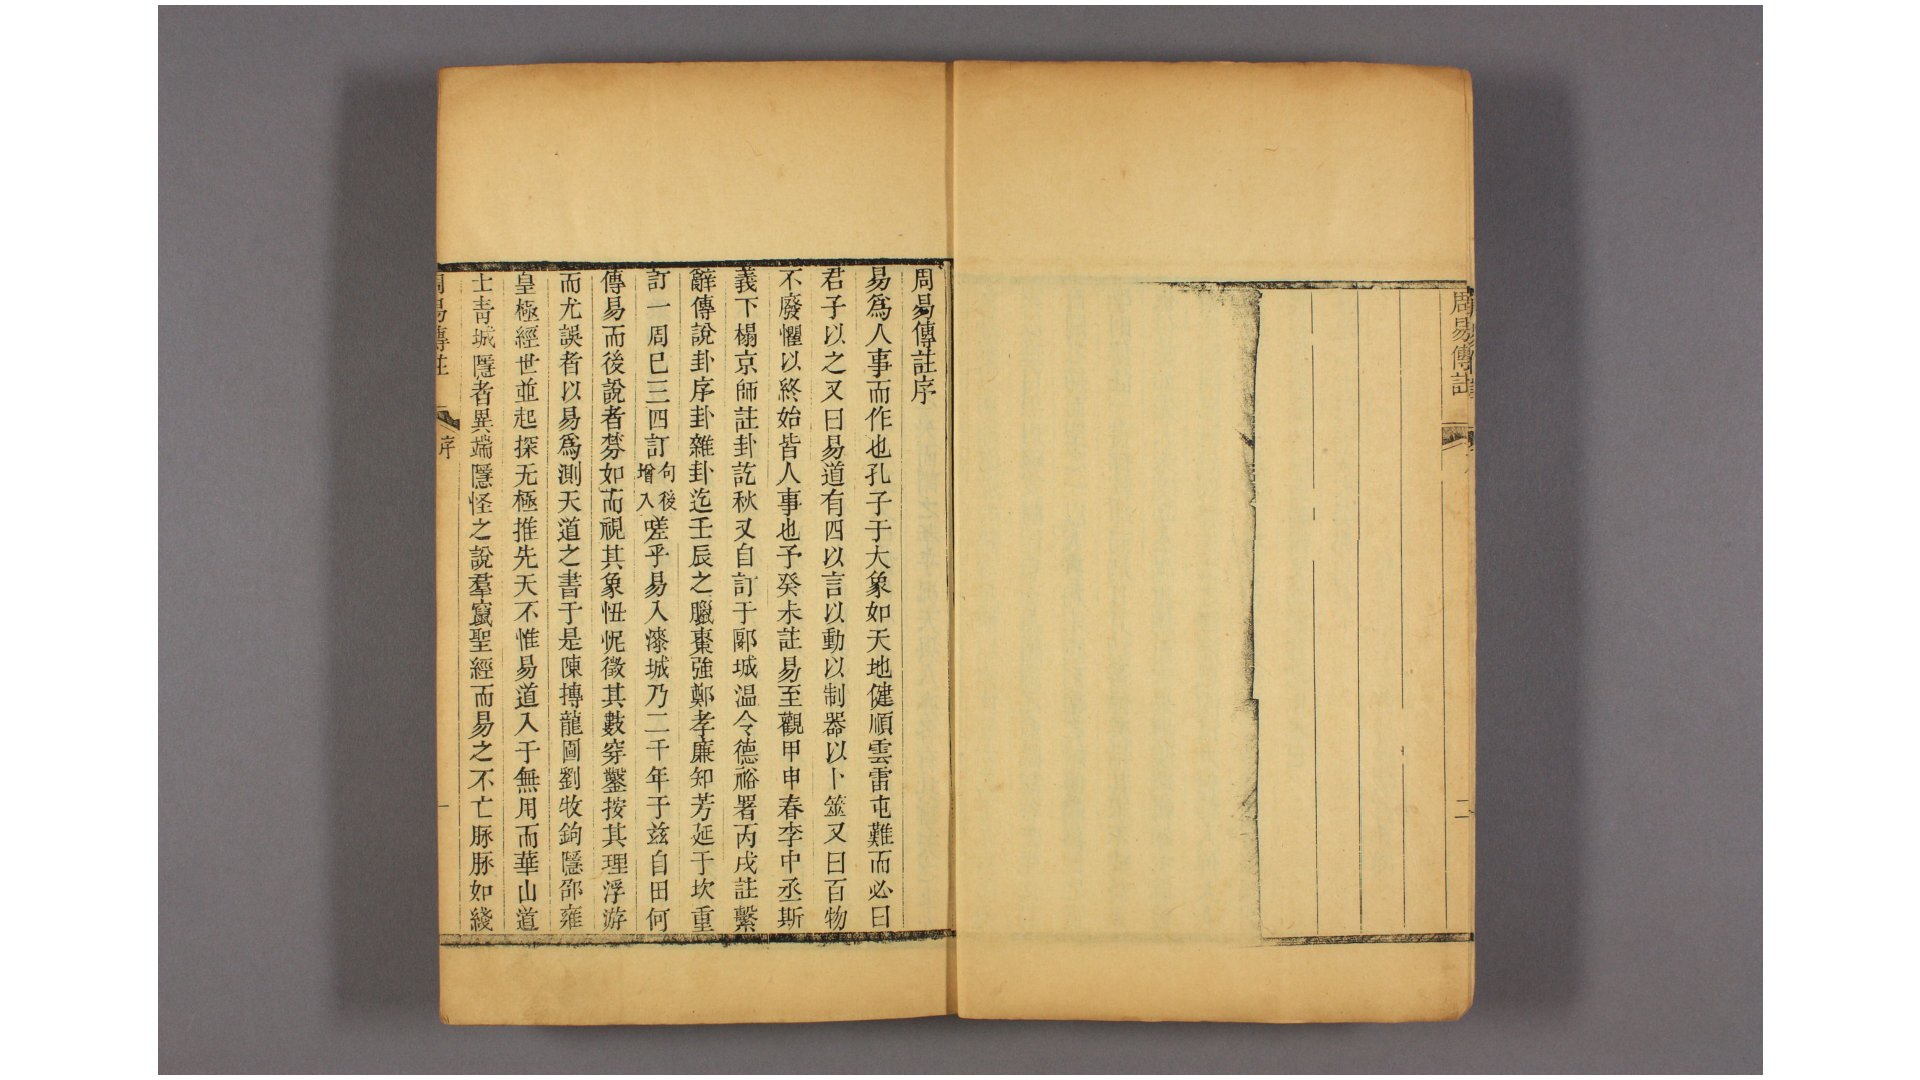 周易傳註
二
周易傳註序
易爲人事而作也孔子于大象如天地健順雲雷屯難而必曰
君子以之又曰易道有四以言以動以制器以卜筮又曰百物
不廢懼以終始皆人事也予癸未註易至觀甲申春李中丞斯
義下榻京師註卦訖秋又自訂于郾城温令德裕署丙戌註繫
辭傳說卦序卦雜卦迄壬辰之臘棗強鄭孝廉知芳延于坎重
訂一周巳三四訂句後增入嗟乎易入漆城乃二千年于兹自田何
傳易而後說者棼如而視其象忸怩徵其數穿鑿按其理浮游
而尤誤者以易爲測天道之書于是陳摶龍圖劉牧鉤隱邵雍
皇極經世並起探无極推先天不惟易道入于無用而華山道
士青城隱者異端隱怪之說羣竄聖經而易之不亡脉脉如綫
周易傳註
序
一